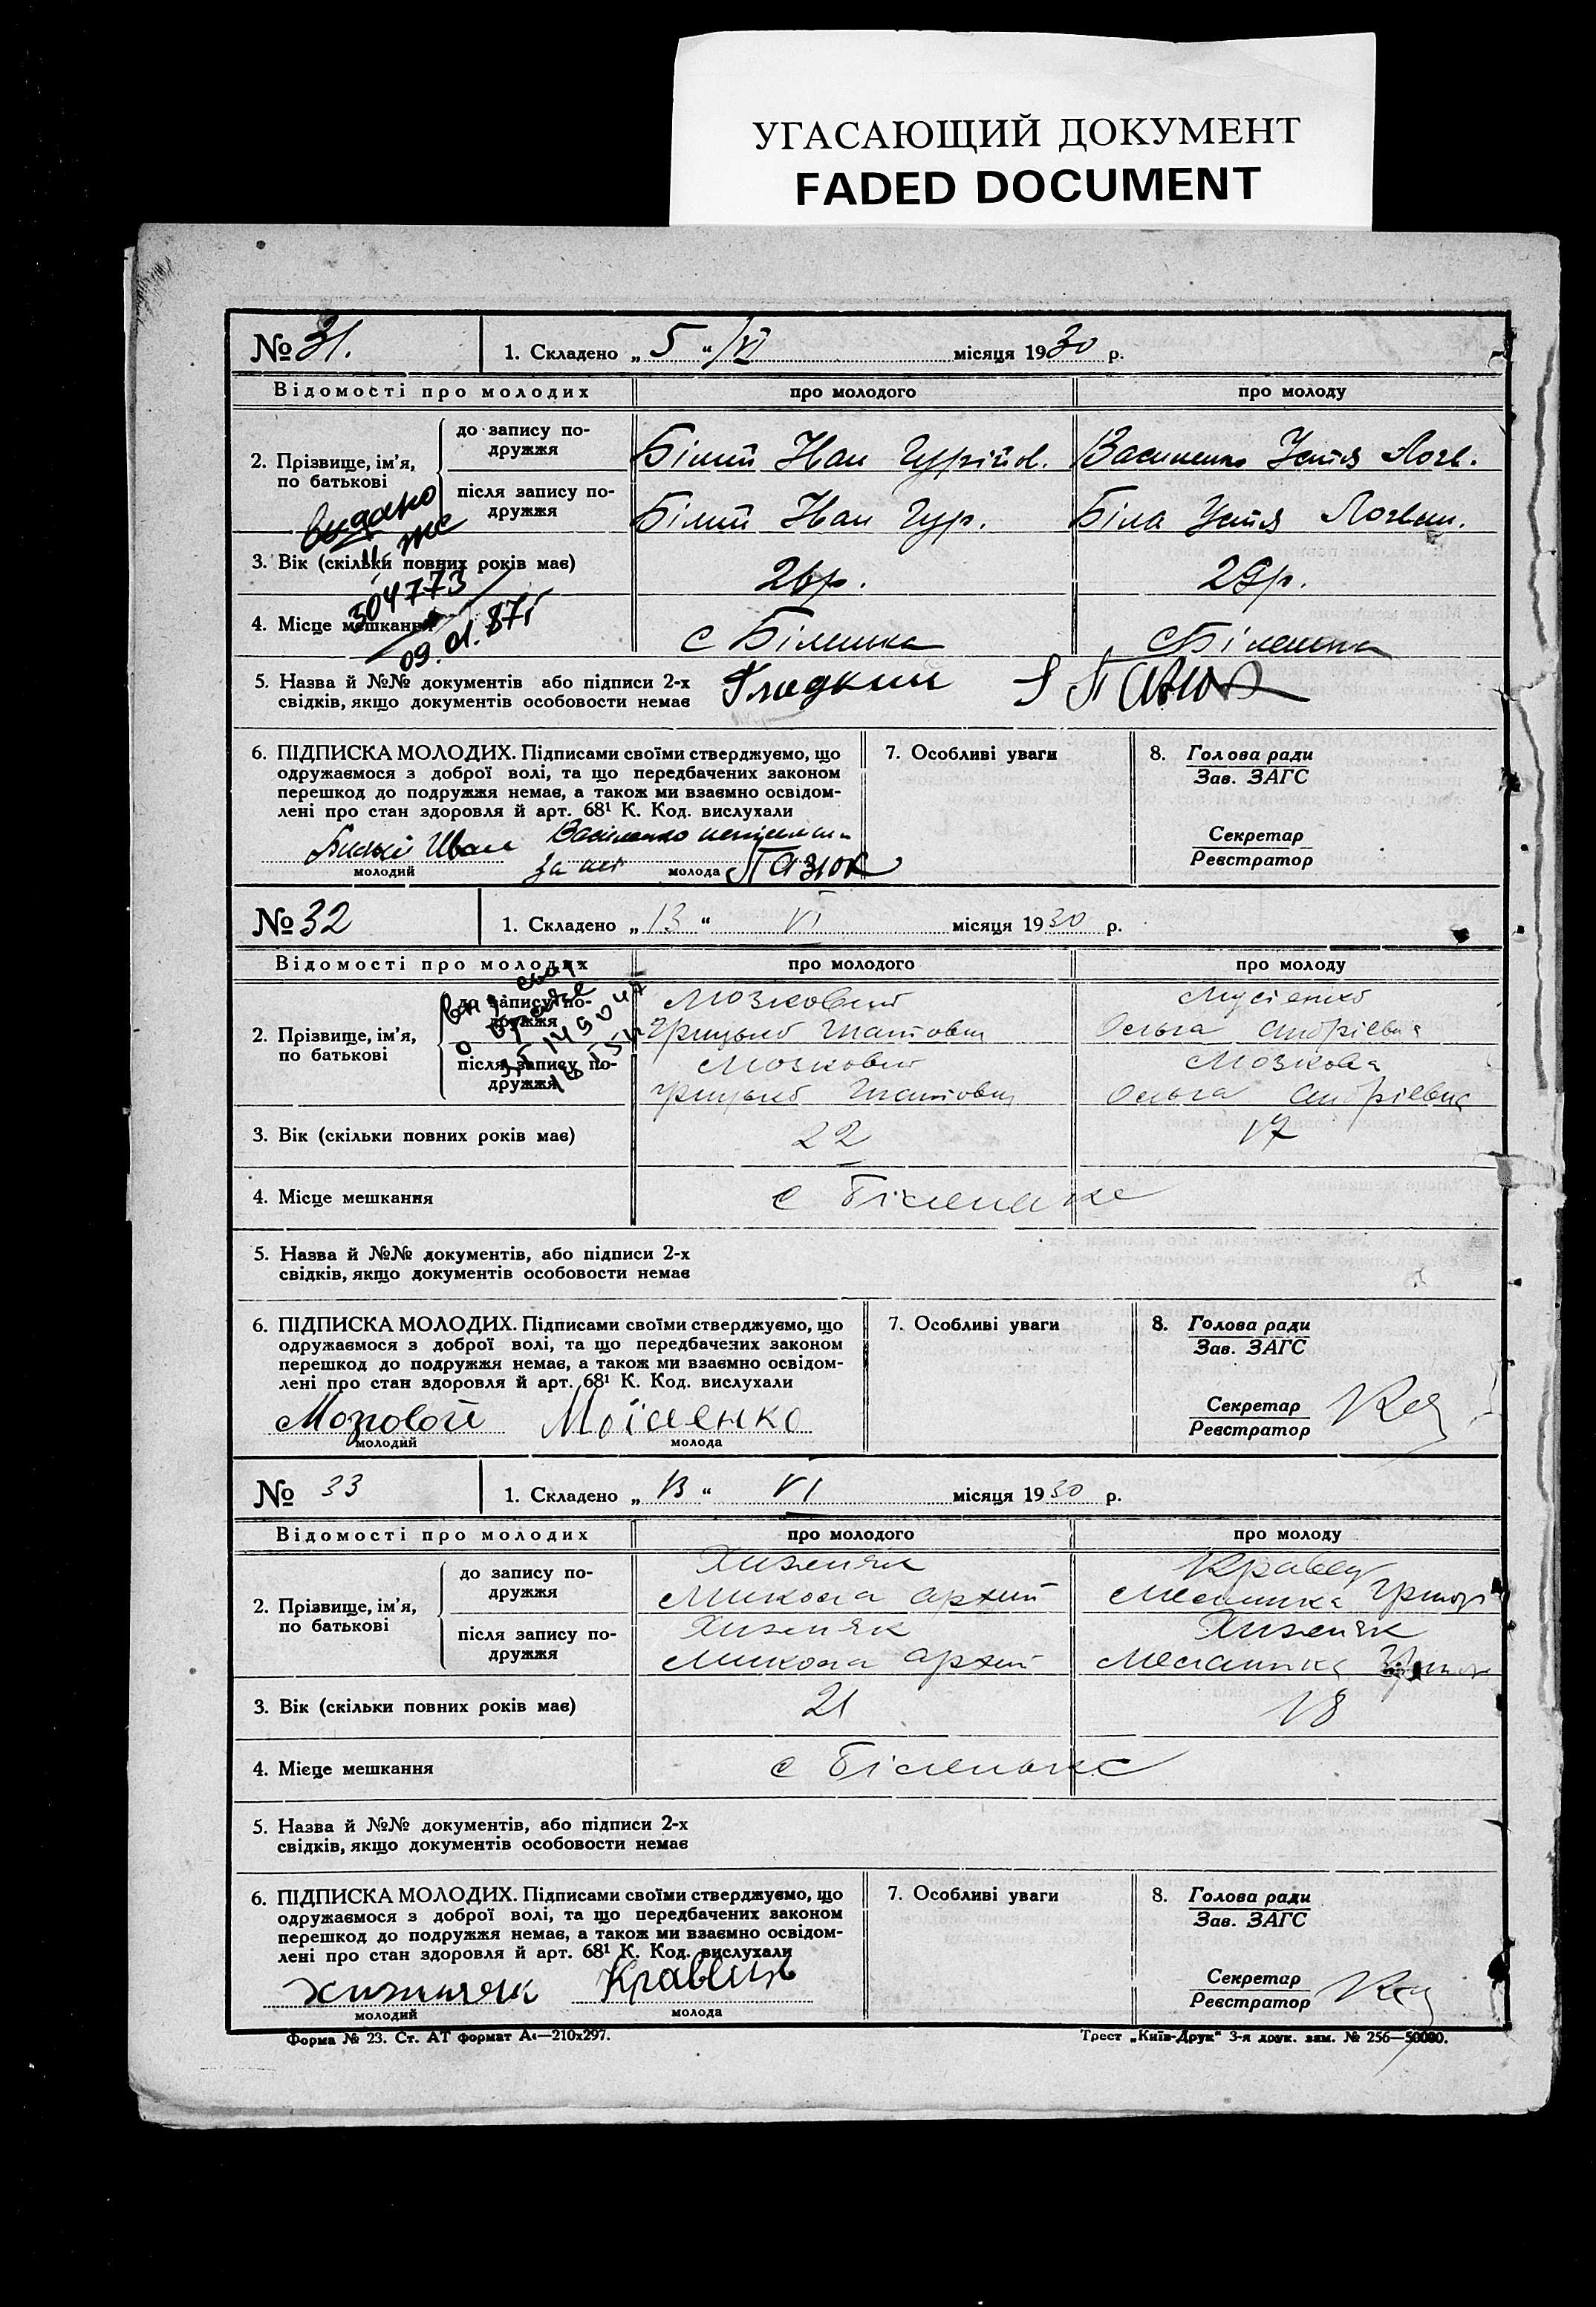 УГАСАЮЩИЙ ДОКУМЕНТ
FADED DOCUMENT
№ 31. 1. Складено „ 5 “ VI місяця 1930 р.
Відомості про молодих про молодого про молоду
2. Прізвище, ім'я, по батькові
до запису подружжя Білий Іван Гурійов. Василенко Устя Логв.
після запису подружжя Білий Іван Гур. Біла Устя Логвин.
видано
3. Вік (скільки повних років має) 26р. 29р.
304773
4. Місце мешкання с Біленька с Біленька
09.01.87г
5. Назва й №№ документів або підписи 2-х
свідків, якщо документів особовости немає Гладкий Пазюк
6. ПІДПИСКА МОЛОДИХ. Підписами своїми стверджуємо, що
одружаємося з доброї волі, та що передбачених законом
перешкод до подружжя немає, а також ми взаємно освідом-
лені про стан здоровля й арт. 68¹ К. Код. вислухали
Иван Василенко
за неї Пазюк
молодий молода
7. Особливі уваги
8. Голова ради
Зав. ЗАГС
Секретар
Реєстратор
№ 32 1. Складено „ 13 “ VI місяця 1930 р.
Відомості про молодих про молодого про молоду
2. Прізвище, ім'я, по батькові
до запису подружжя Мозковий Мусієнко
Грицько Ольга Андріевна
після запису подружжя Мозковий Мозкова
Грицько Ольга Андріевна
о браке
3. Вік (скільки повних років має) 22 17
4. Місце мешкання с Біленьке
5. Назва й №№ документів, або підписи 2-х
свідків, якщо документів особовости немає
6. ПІДПИСКА МОЛОДИХ. Підписами своїми стверджуємо, що
одружаємося з доброї волі, та що передбачених законом
перешкод до подружжя немає, а також ми взаємно освідом-
лені про стан здоровля й арт. 68¹ К. Код. вислухали
Моісиенко
молодий молода
7. Особливі уваги
8. Голова ради
Зав. ЗАГС
Секретар
Реєстратор
№ 33 1. Складено „ 13 “ VI місяця 1930 р.
Відомості про молодих про молодого про молоду
2. Прізвище, ім'я, по батькові
до запису подружжя Хижняк Кравец
Микола Архип Меланика Григор
після запису подружжя Хижняк Хижняк
Микола Архип Меланика
3. Вік (скільки повних років має) 21 18
4. Місце мешкання с Біленьке
5. Назва й №№ документів, або підписи 2-х
свідків, якщо документів особовости немає
6. ПІДПИСКА МОЛОДИХ. Підписами своїми стверджуємо, що
одружаємося з доброї волі, та що передбачених законом
перешкод до подружжя немає, а також ми взаємно освідом-
лені про стан здоровля й арт. 68¹ К. Код. вислухали
хижняк Кравець
молодий молода
7. Особливі уваги
8. Голова ради
Зав. ЗАГС
Секретар
Реєстратор
Форма № 23. Ст. АТ формат А₄—210x297. Трест „Київ-Друк“ 3-я друк. зам. № 256—50000.